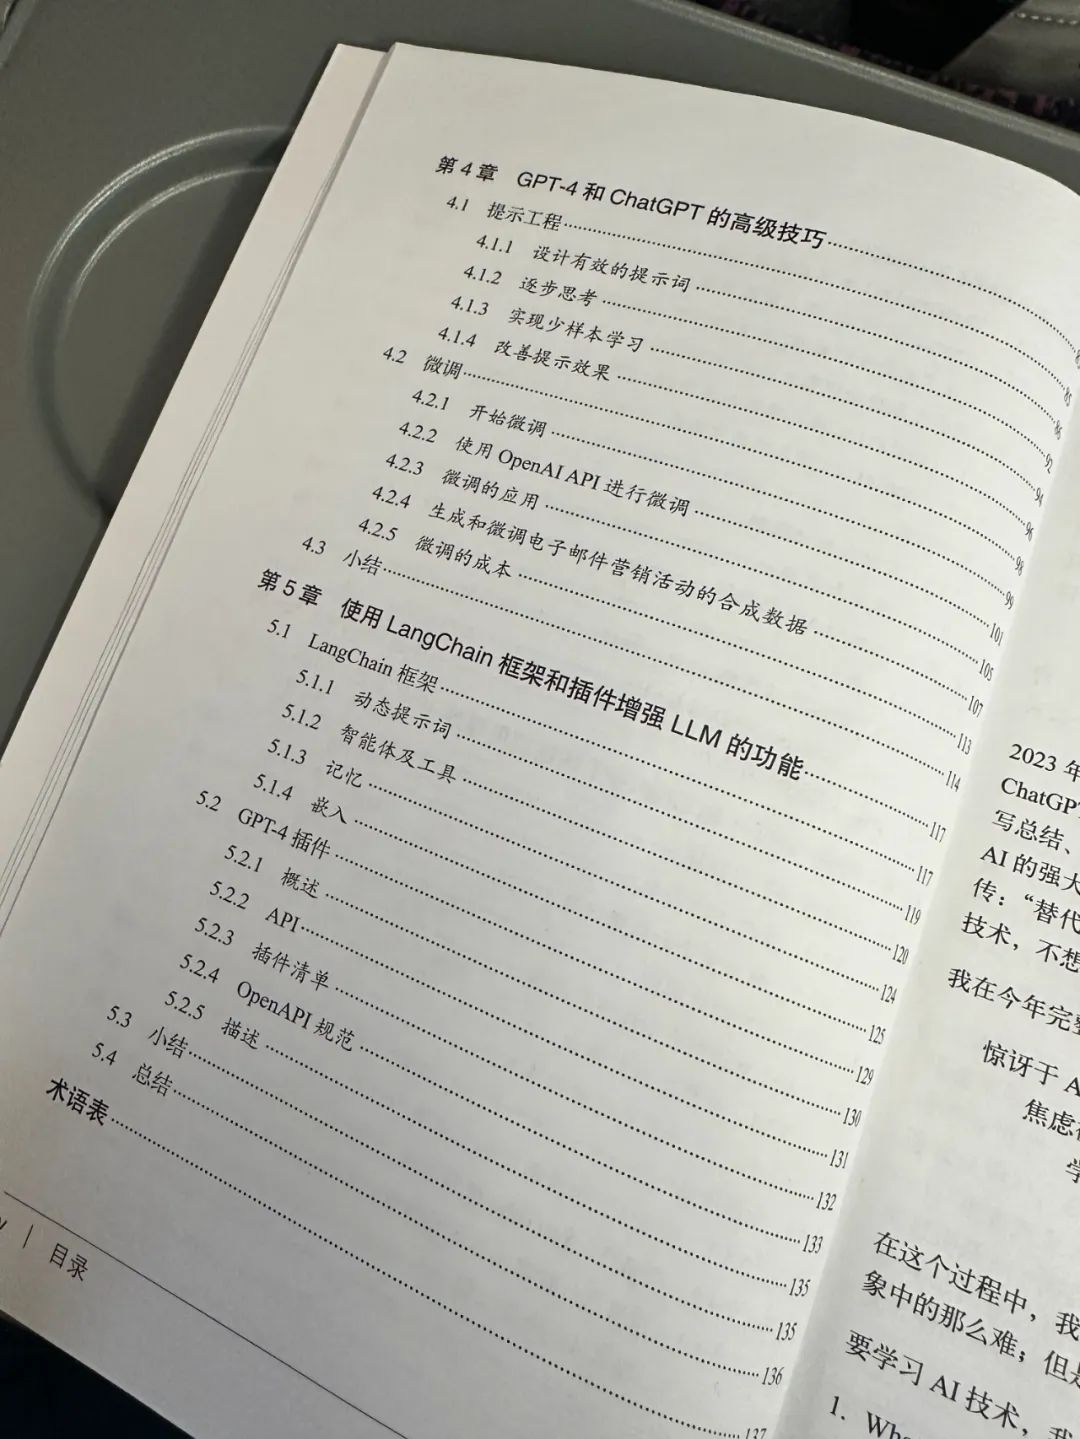 第4章 GPT-4 和 ChatGPT 的高级技巧
4.1 提示工程 85
4.1.1 设计有效的提示词 86
4.1.2 逐步思考 92
4.1.3 实现少样本学习 94
4.1.4 改善提示效果 96
4.2 微调 98
4.2.1 开始微调 99
4.2.2 使用 OpenAI API 进行微调 101
4.2.3 微调的应用 105
4.2.4 生成和微调电子邮件营销活动的合成数据 107
4.2.5 微调的成本 113
4.3 小结 114
第5章 使用 LangChain 框架和插件增强 LLM 的功能 117
5.1 LangChain 框架 117
5.1.1 动态提示词 119
5.1.2 智能体及工具 120
5.1.3 记忆 124
5.1.4 嵌入 125
5.2 GPT-4 插件 129
5.2.1 概述 130
5.2.2 API 131
5.2.3 插件清单 132
5.2.4 OpenAPI 规范 133
5.2.5 描述 135
5.3 小结 135
5.4 总结 136
术语表 137
| 目录
2023 年
ChatGP
写总结、
AI 的强大
传：“替代
技术，不想
我在今年完整
惊讶于 A
焦虑
学
在这个过程中，我
象中的那么难；但是
要学习 AI 技术，我
1. Wh